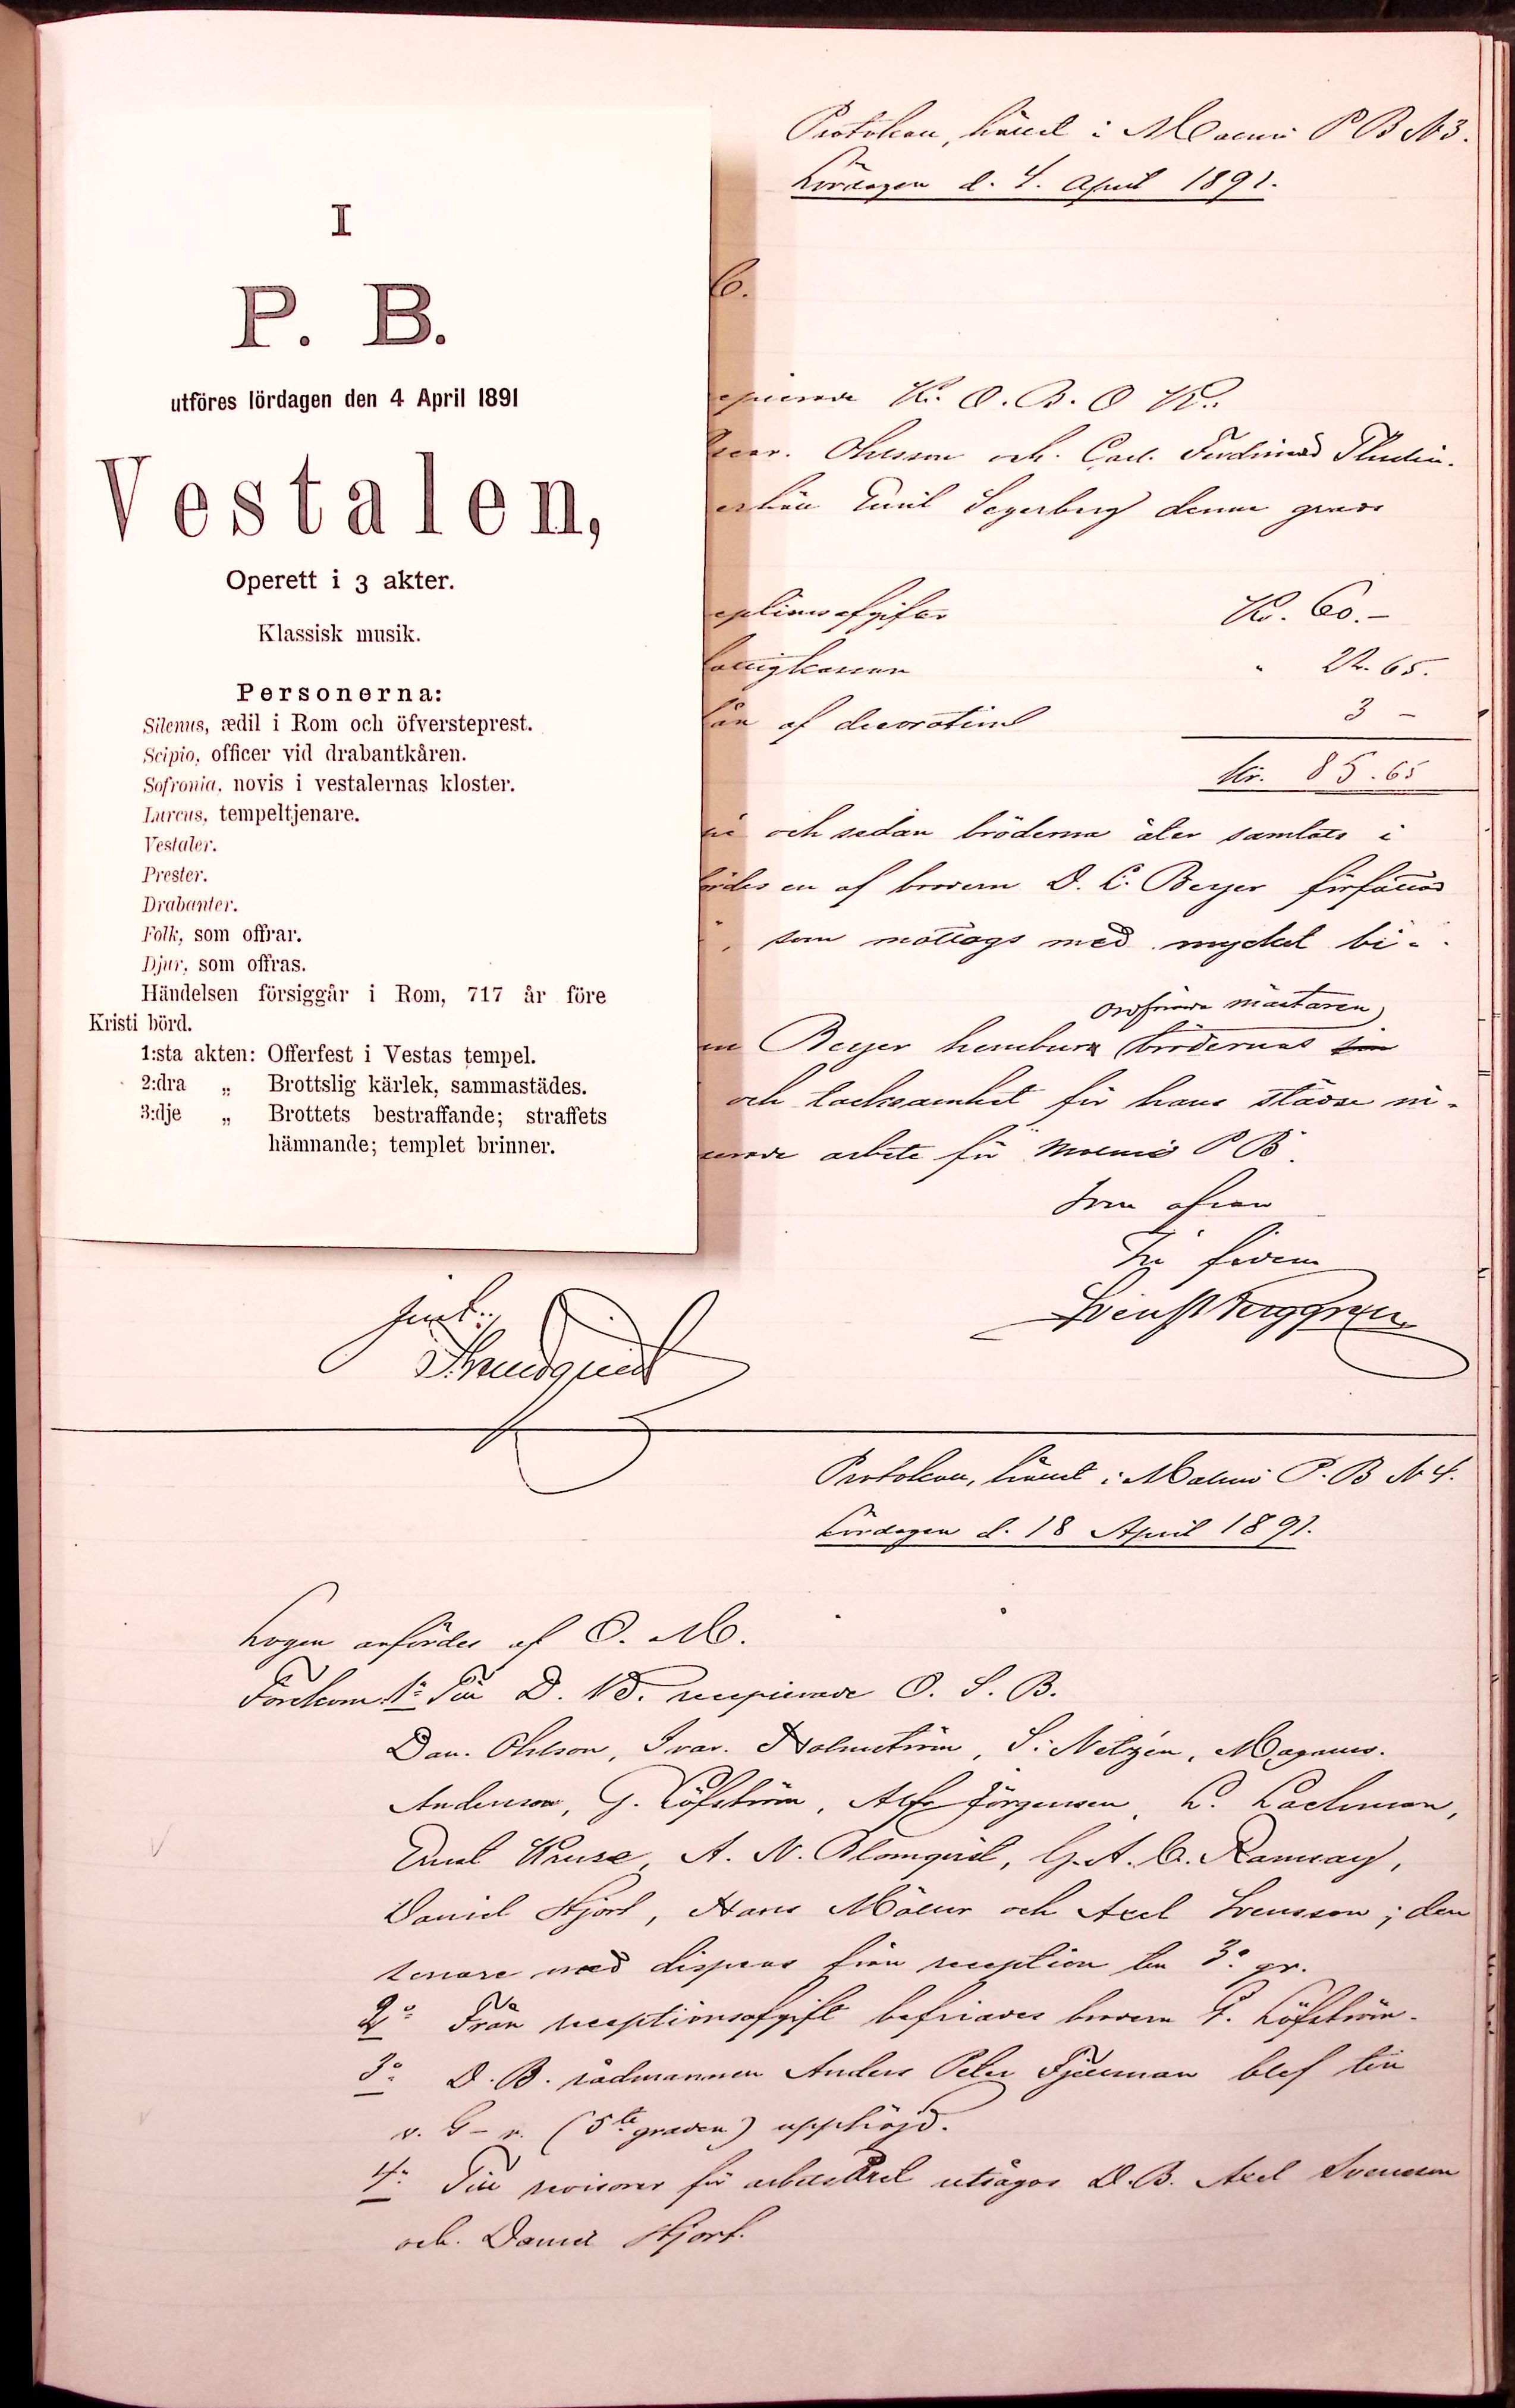 I
P. B.
utföres lördagen den 4 April 1891
Vestalen,
Operett i 3 akter.
Klassisk musik.
Personerna:
Silenus, ædil i Rom och öfversteprest.
Scipio, officer vid drabantkåren.
Sofronia, novis i vestalernas kloster.
Lurcus, tempeltjenare.
Vestaler.
Prester.
Drabanter.
Folk, som offrar.
Djur, som offras.
Händelsen försiggår i Rom, 717 år före
Kristi börd.
1:sta akten: Offerfest i Vestas tempel.
2:dra „ Brottslig kärlek, sammastädes.
3:dje „ Brottets bestraffande; straffets
hämnande; templet brinner.
Protokoll, hållet i Malmö P B N 3.
Lördagen d. 4. April 1891.
K. O. B. O
Ohlsson och Carl Ferdinand Thulin.
Emil Segerberg denna grad
eptionsafgifter Kr. 60.–
fattigkassan " 22.65.
lån af decorationer 3 –
Kr. 85.65
och sedan bröderna åter samlats i
en af brodern D. C. Beyer författad
, som mottogs med mycket bi-
ordförande mästaren
Beyer hembura brödernas
och tacksamhet för hans städse in-
arbete för Malmö P B.
Som ofvan
In fidem
Svenst Berggren
Just.:
Lundquist
Protokoll, hållet i Malmö P. B N 4.
Lördagen d. 18 April 1891.
Logen anfördes af O. M.
Förekom: 1o Till D. V. recipierade O. S. B.
Dan. Ohlson, Ivar Holmström, S. Nelzén, Magnus
Andersson, G. Löfström, Alfr Jörgensen, L. Lachman,
Ernst Kruse, A. N. Blomqvist, G. A. C. Ramsay,
Daniel Hjort, Hans Möller och Axel Svensson; den
senare med dispens från reception till 3o gr.
2o Från receptionsafgift befriades brodern G. Löfström.
3o D. B. rådmannen Anders Peter Fjellman blef till
v. G – r. (5te graden) upphöjd.
4o Till revisorer för arbetsåret utsågos D. B. Axel Svensson
och Daniel Hjort.